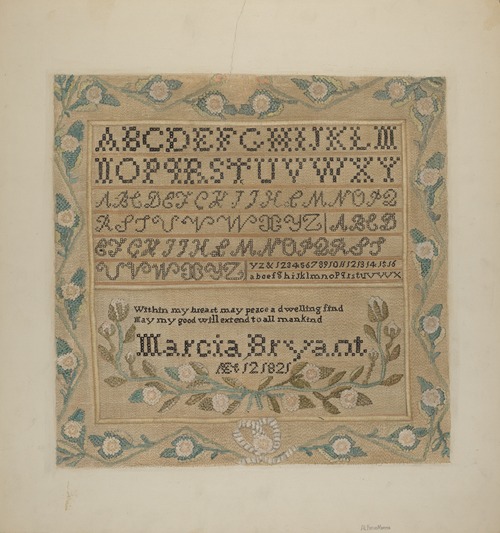 ABCDEFGHIJKLM
NOPQRSTUVWXY
ABCDEFGHIJKLMNOPQ
RSTUVWXYZ ABCD
EFGHIJKLMNOPQRST
UVWXYZ yz& 1 2 3 4 5 6 7 8 9 10 11 12 13 14 15 16
Within my breast may peace a dwelling find
May my good will extend to all mankind
Marcia Bryant
Æt 12 1821